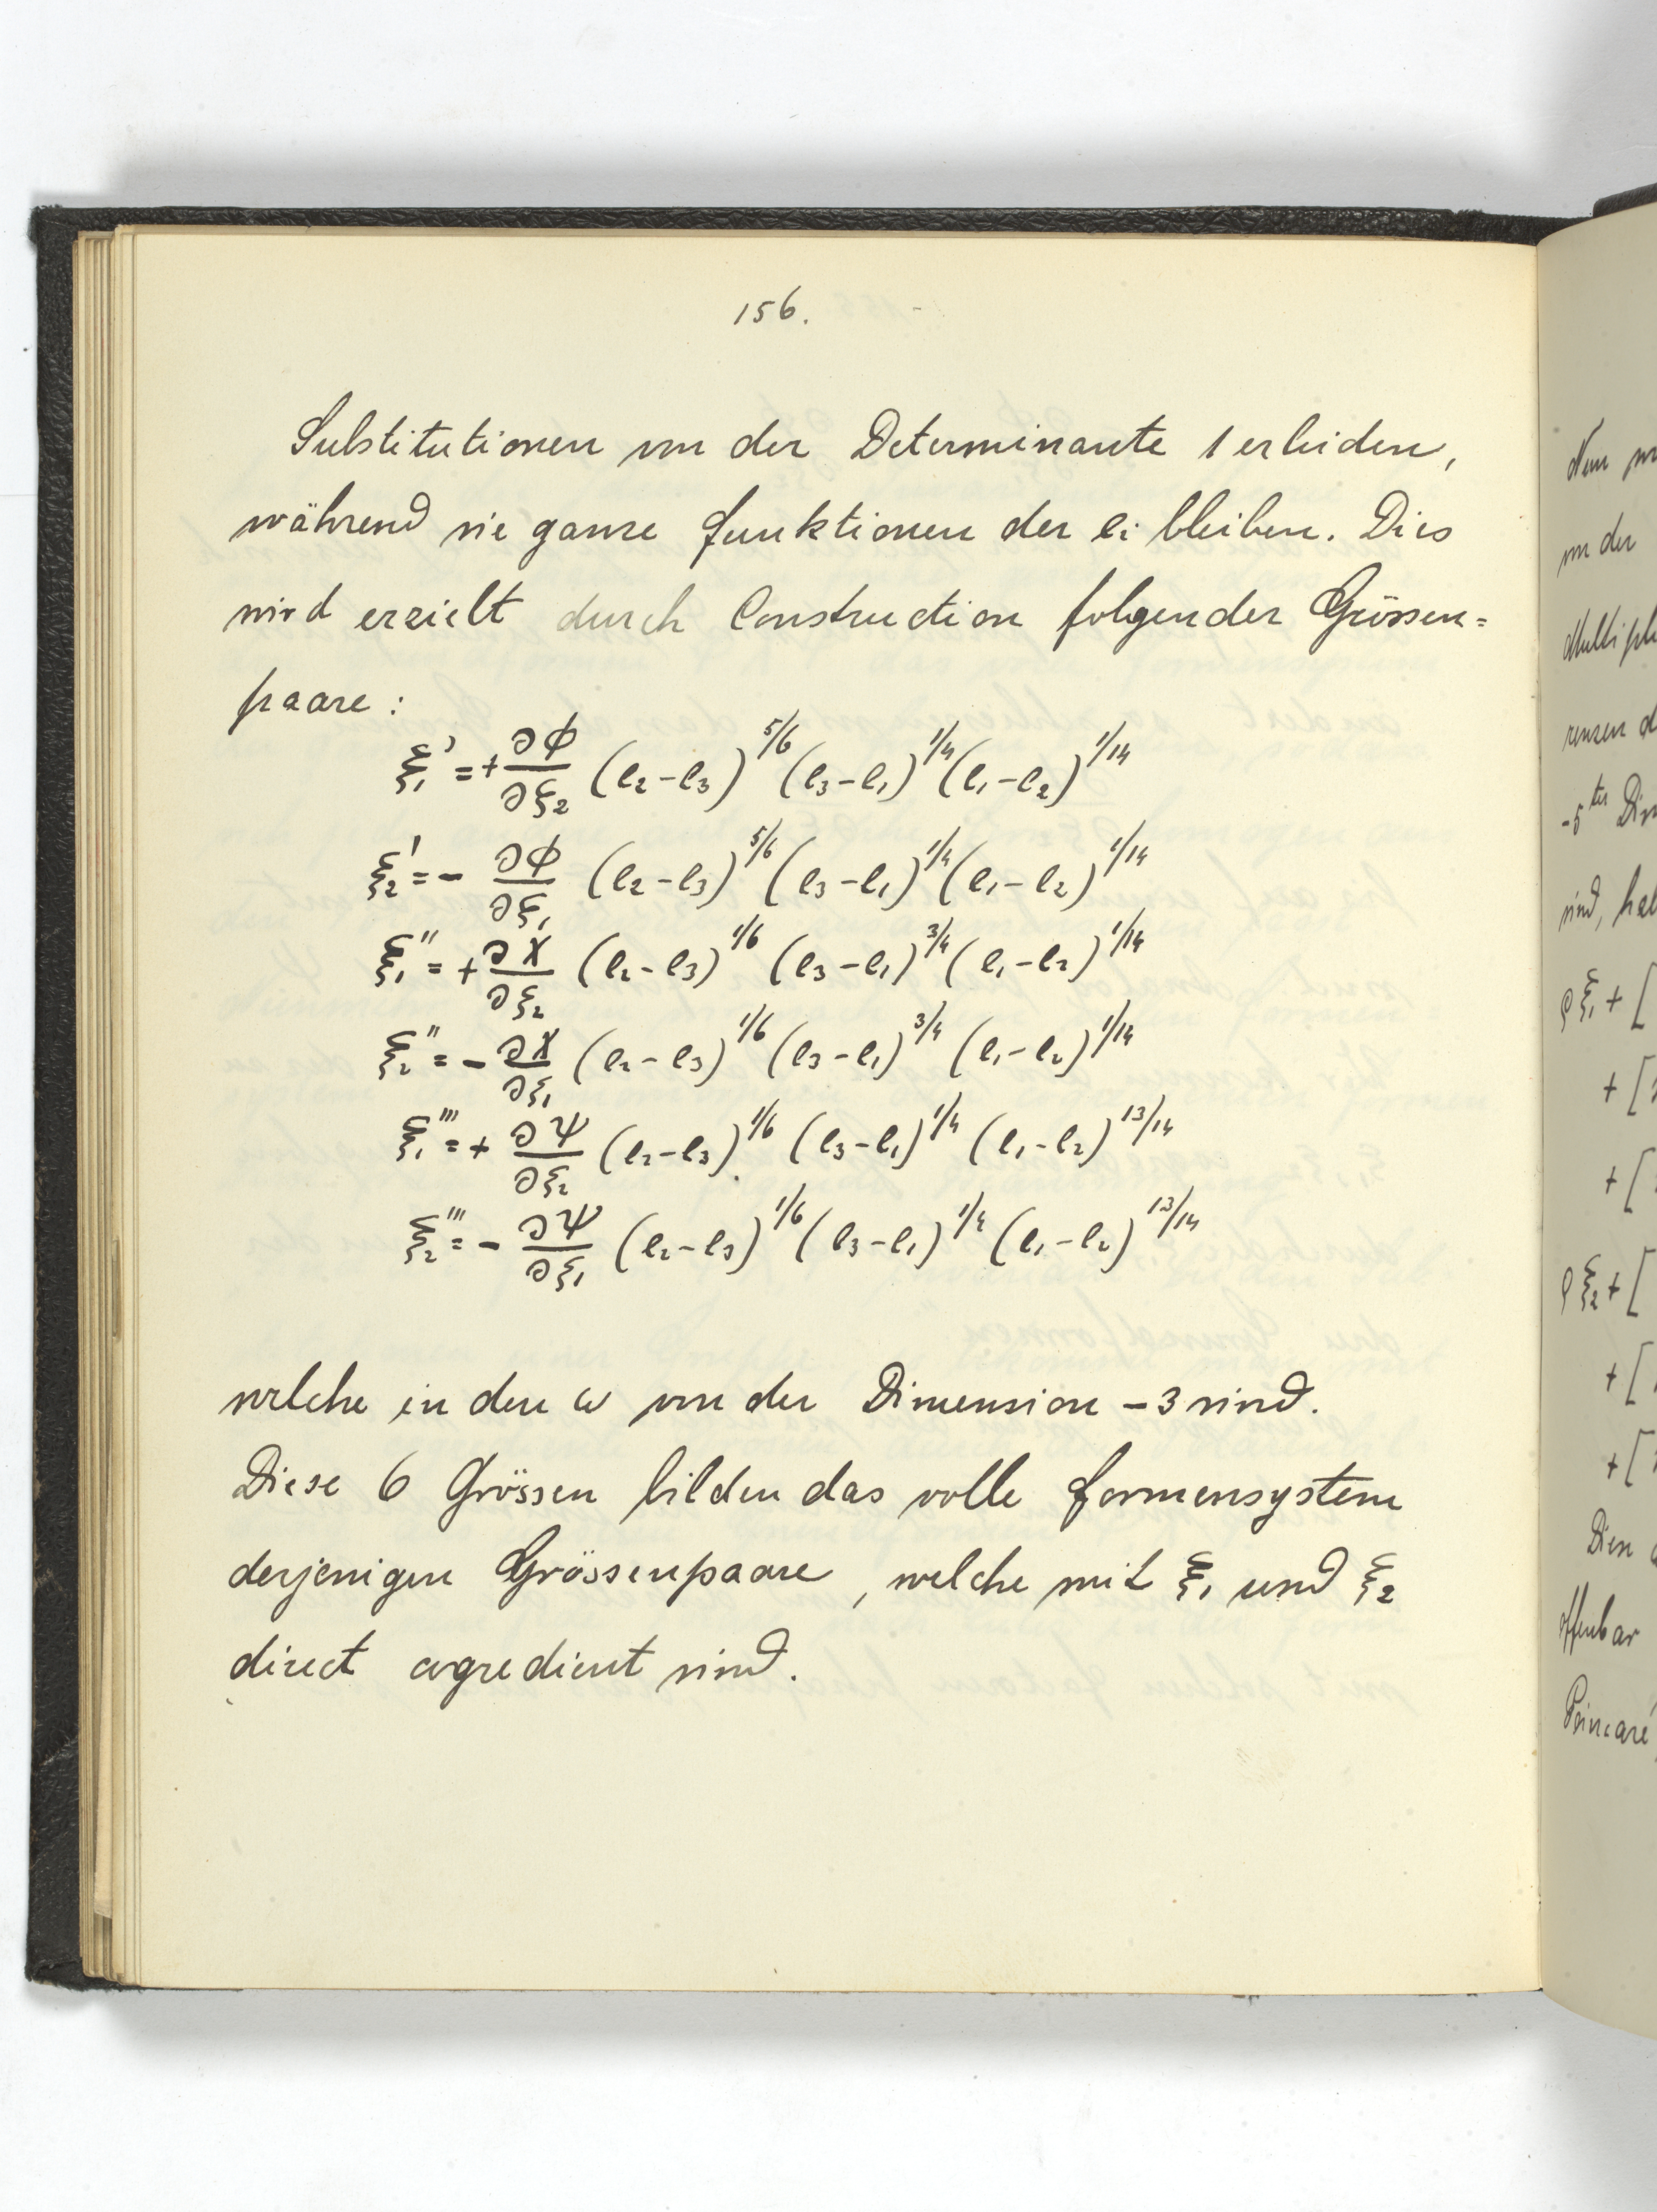 156.
Substitutionen von der Determinante 1 erleiden,
während sie ganze Funktionen der ei bleiben. Dies
wird erzielt durch Construction folgender Grössen=
paare:
ξ₁' = + ∂ϕ/∂ξ₂ (e₂-e₃)^5/6 (e₃-e₁)^1/4 (e₁-e₂)^1/14
ξ₂' = - ∂ϕ/∂ξ₁ (e₂-e₃)^5/6 (e₃-e₁)^1/4 (e₁-e₂)^1/14
ξ₁'' = + ∂χ/∂ξ₂ (e₂-e₃)^1/6 (e₃-e₁)^3/4 (e₁-e₂)^1/14
ξ₂'' = - ∂χ/∂ξ₁ (e₂-e₃)^1/6 (e₃-e₁)^3/4 (e₁-e₂)^1/14
ξ₁''' = + ∂ψ/∂ξ₂ (e₂-e₃)^1/6 (e₃-e₁)^1/4 (e₁-e₂)^13/14
ξ₂''' = - ∂ψ/∂ξ₁ (e₂-e₃)^1/6 (e₃-e₁)^1/4 (e₁-e₂)^13/14
welche in den ω von der Dimension -3 sind.
Diese 6 Grössen bilden das volle Formensystem
derjenigen Grössenpaare, welche mit ξ₁ und ξ₂
direct cogredient sind.
von der
-5ter
sind,
ρξ₁ + [
+ [
+ [
ρξ₂ + [
+ [
+ [
offenbar
Poincaré